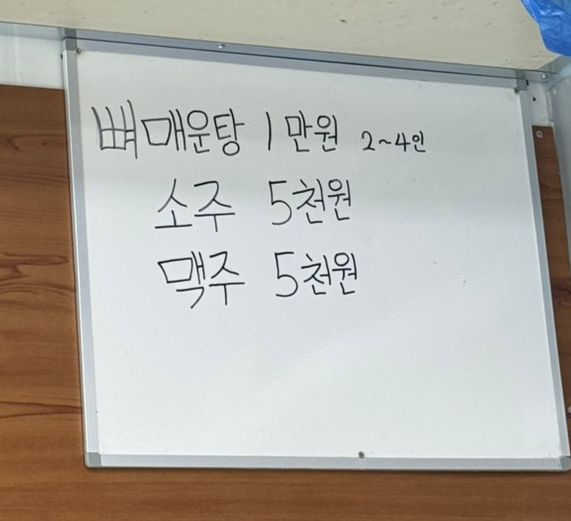 뼈매운탕 1만원 2~4인
소주 5천원
맥주 5천원